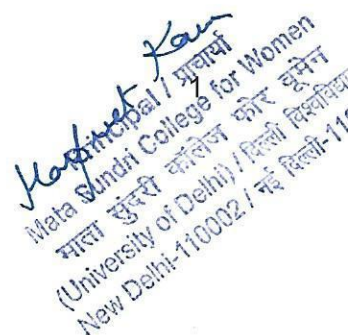 Harpreet Kaur
Principal / प्राचार्या
1
Mata Sundri College for Women
माता सुंदरी कॉलेज फोर वूमेन
(University of Delhi) / दिल्ली विश्वविद्या
New Delhi-110002 / नई दिल्ली-11